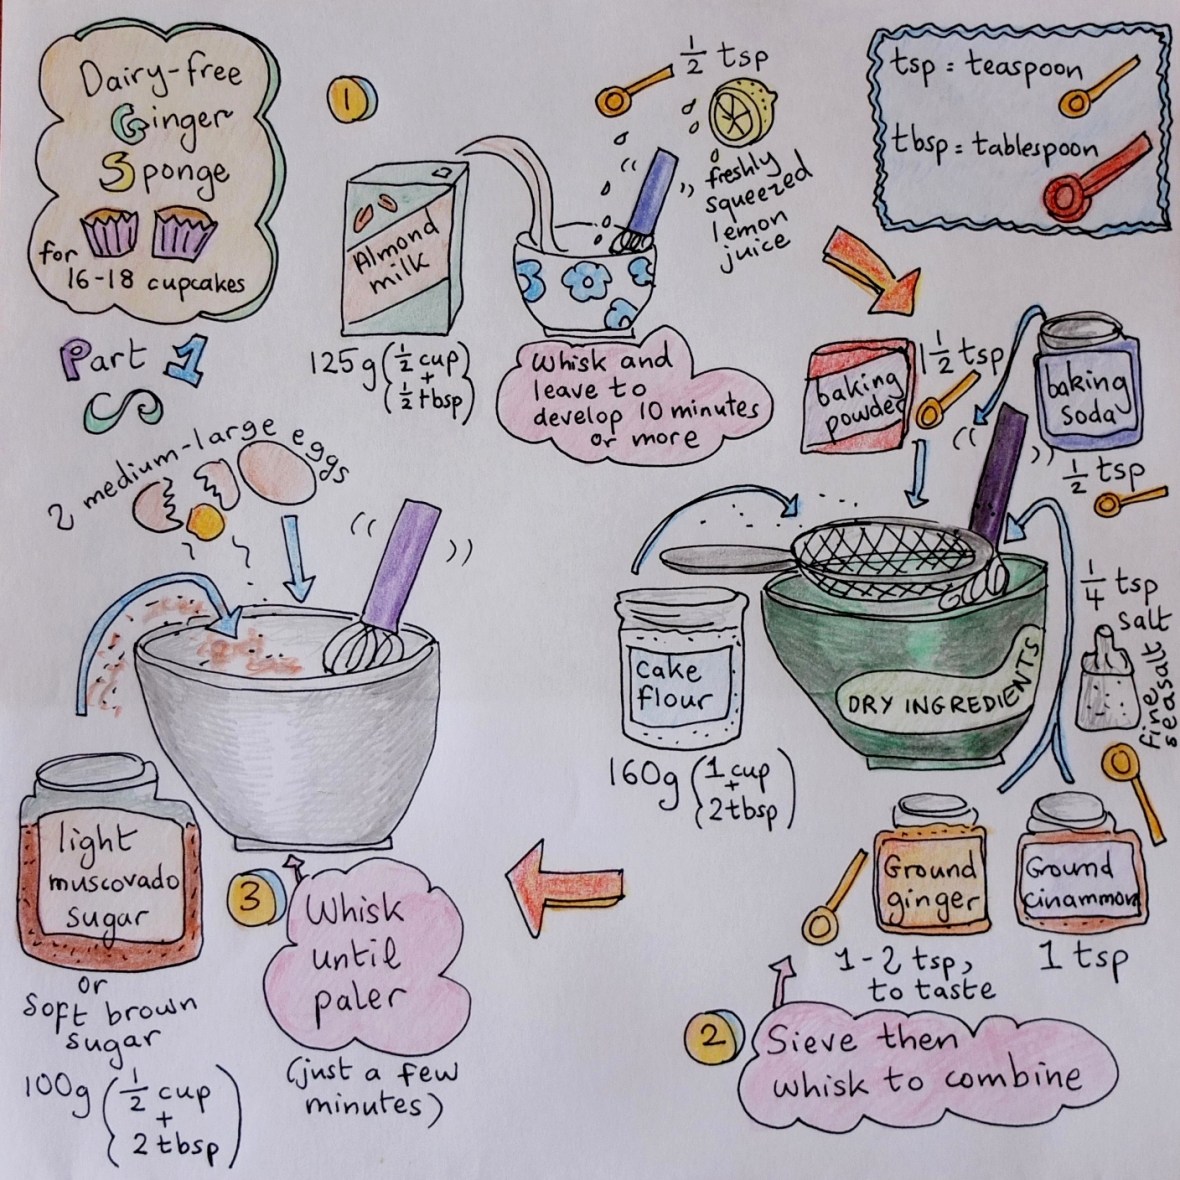 Dairy-free
Ginger
Sponge
for
16-18 cupcakes
Part 1
1
Almond
milk
125g (1/2 cup
+
1/2 tbsp)
1/2 tsp
freshly
squeezed
lemon
juice
Whisk and
leave to
develop 10 minutes
or more
tsp = teaspoon
tbsp = tablespoon
baking
powder
1 1/2 tsp
baking
soda
1/2 tsp
1/4 tsp
salt
fine
seasalt
Cake
flour
160g (1 cup
+
2 tbsp)
DRY INGREDIENTS
Ground
ginger
1-2 tsp,
to taste
Ground
cinammon
1 tsp
2
Sieve then
whisk to combine
2 medium-large eggs
light
muscovado
sugar
or
soft brown
sugar
100g (1/2 cup
+
2 tbsp)
3
Whisk
until
paler
(just a few
minutes)